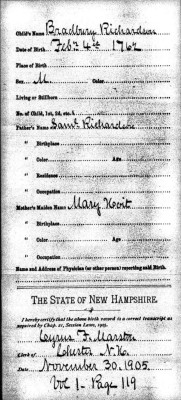 Child's Name Bradbury Richardson
Date of Birth Feby 4th 1762
Place of Birth
Sex M. Color
Living or Stillborn
No. of Child, 1st, 2d, etc.
Father's Name Saml. Richardson
" Birthplace
" Color Age
" Residence
" Occupation
Mother's Maiden Name Mary Hoit
" Birthplace
" Color Age
" Occupation
Name and Address of Physician (or other person) reporting said Birth.
THE STATE OF NEW HAMPSHIRE
I hereby certify that the above birth record is a correct transcript as
required by Chap. 21, Session Laws, 1905.
Cyrus F. Marston
Clerk of Chester N.H.
Date November 30. 1905.
Vol 1 - Page 119